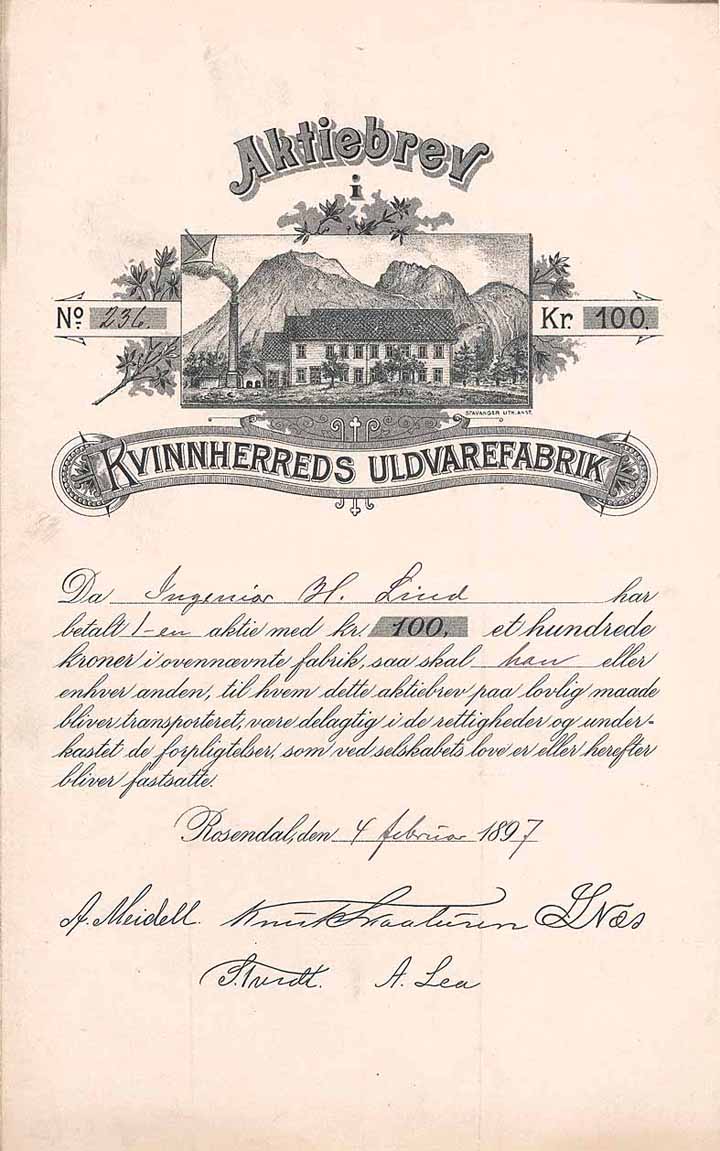 Aktiebrev
i
No. 236. Kr. 100.
STAVANGER LITH. ANST.
KVINNHERREDS ULDVAREFABRIK
Da Ingeniør H. Lind har
betalt 1-en aktie med kr. 100, et hundrede
kroner i ovennævnte fabrik, saa skal han eller
enhver anden, til hvem dette aktiebrev paa lovlig maade
bliver transporteret, være delagtig i de rettigheder og under-
kastet de forpligtelser, som ved selskabets love er eller herefter
bliver fastsatte.
Rosendal, den 4 februar 1897
A. Meidell. Knut Næs
A. Lea